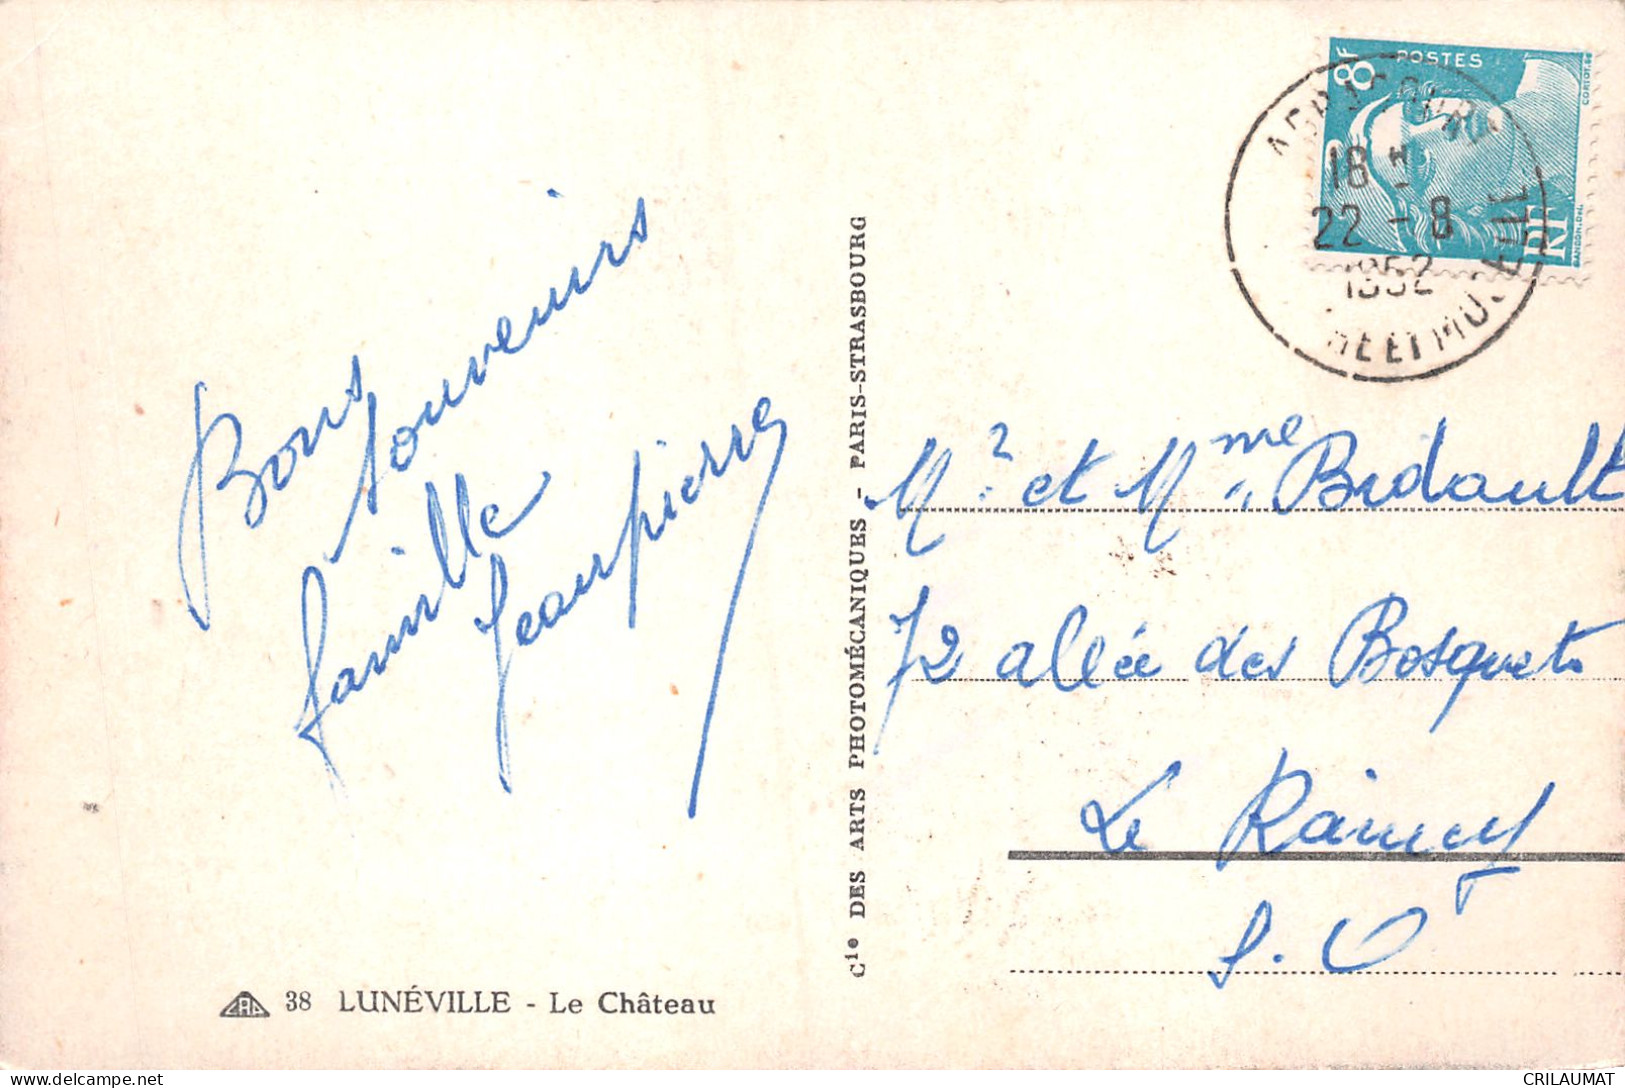 Bons
souvenirs
famille
Jeanpierre
38 LUNÉVILLE - Le Château
Cie DES ARTS PHOTOMÉCANIQUES - PARIS-STRASBOURG
8F
POSTES
RF
18 H
22 - 8
1952
MOSELLE
Mr et Mme Bidault
72 allée des Bosquets
Le Raincy
S. O
CRILAUMAT